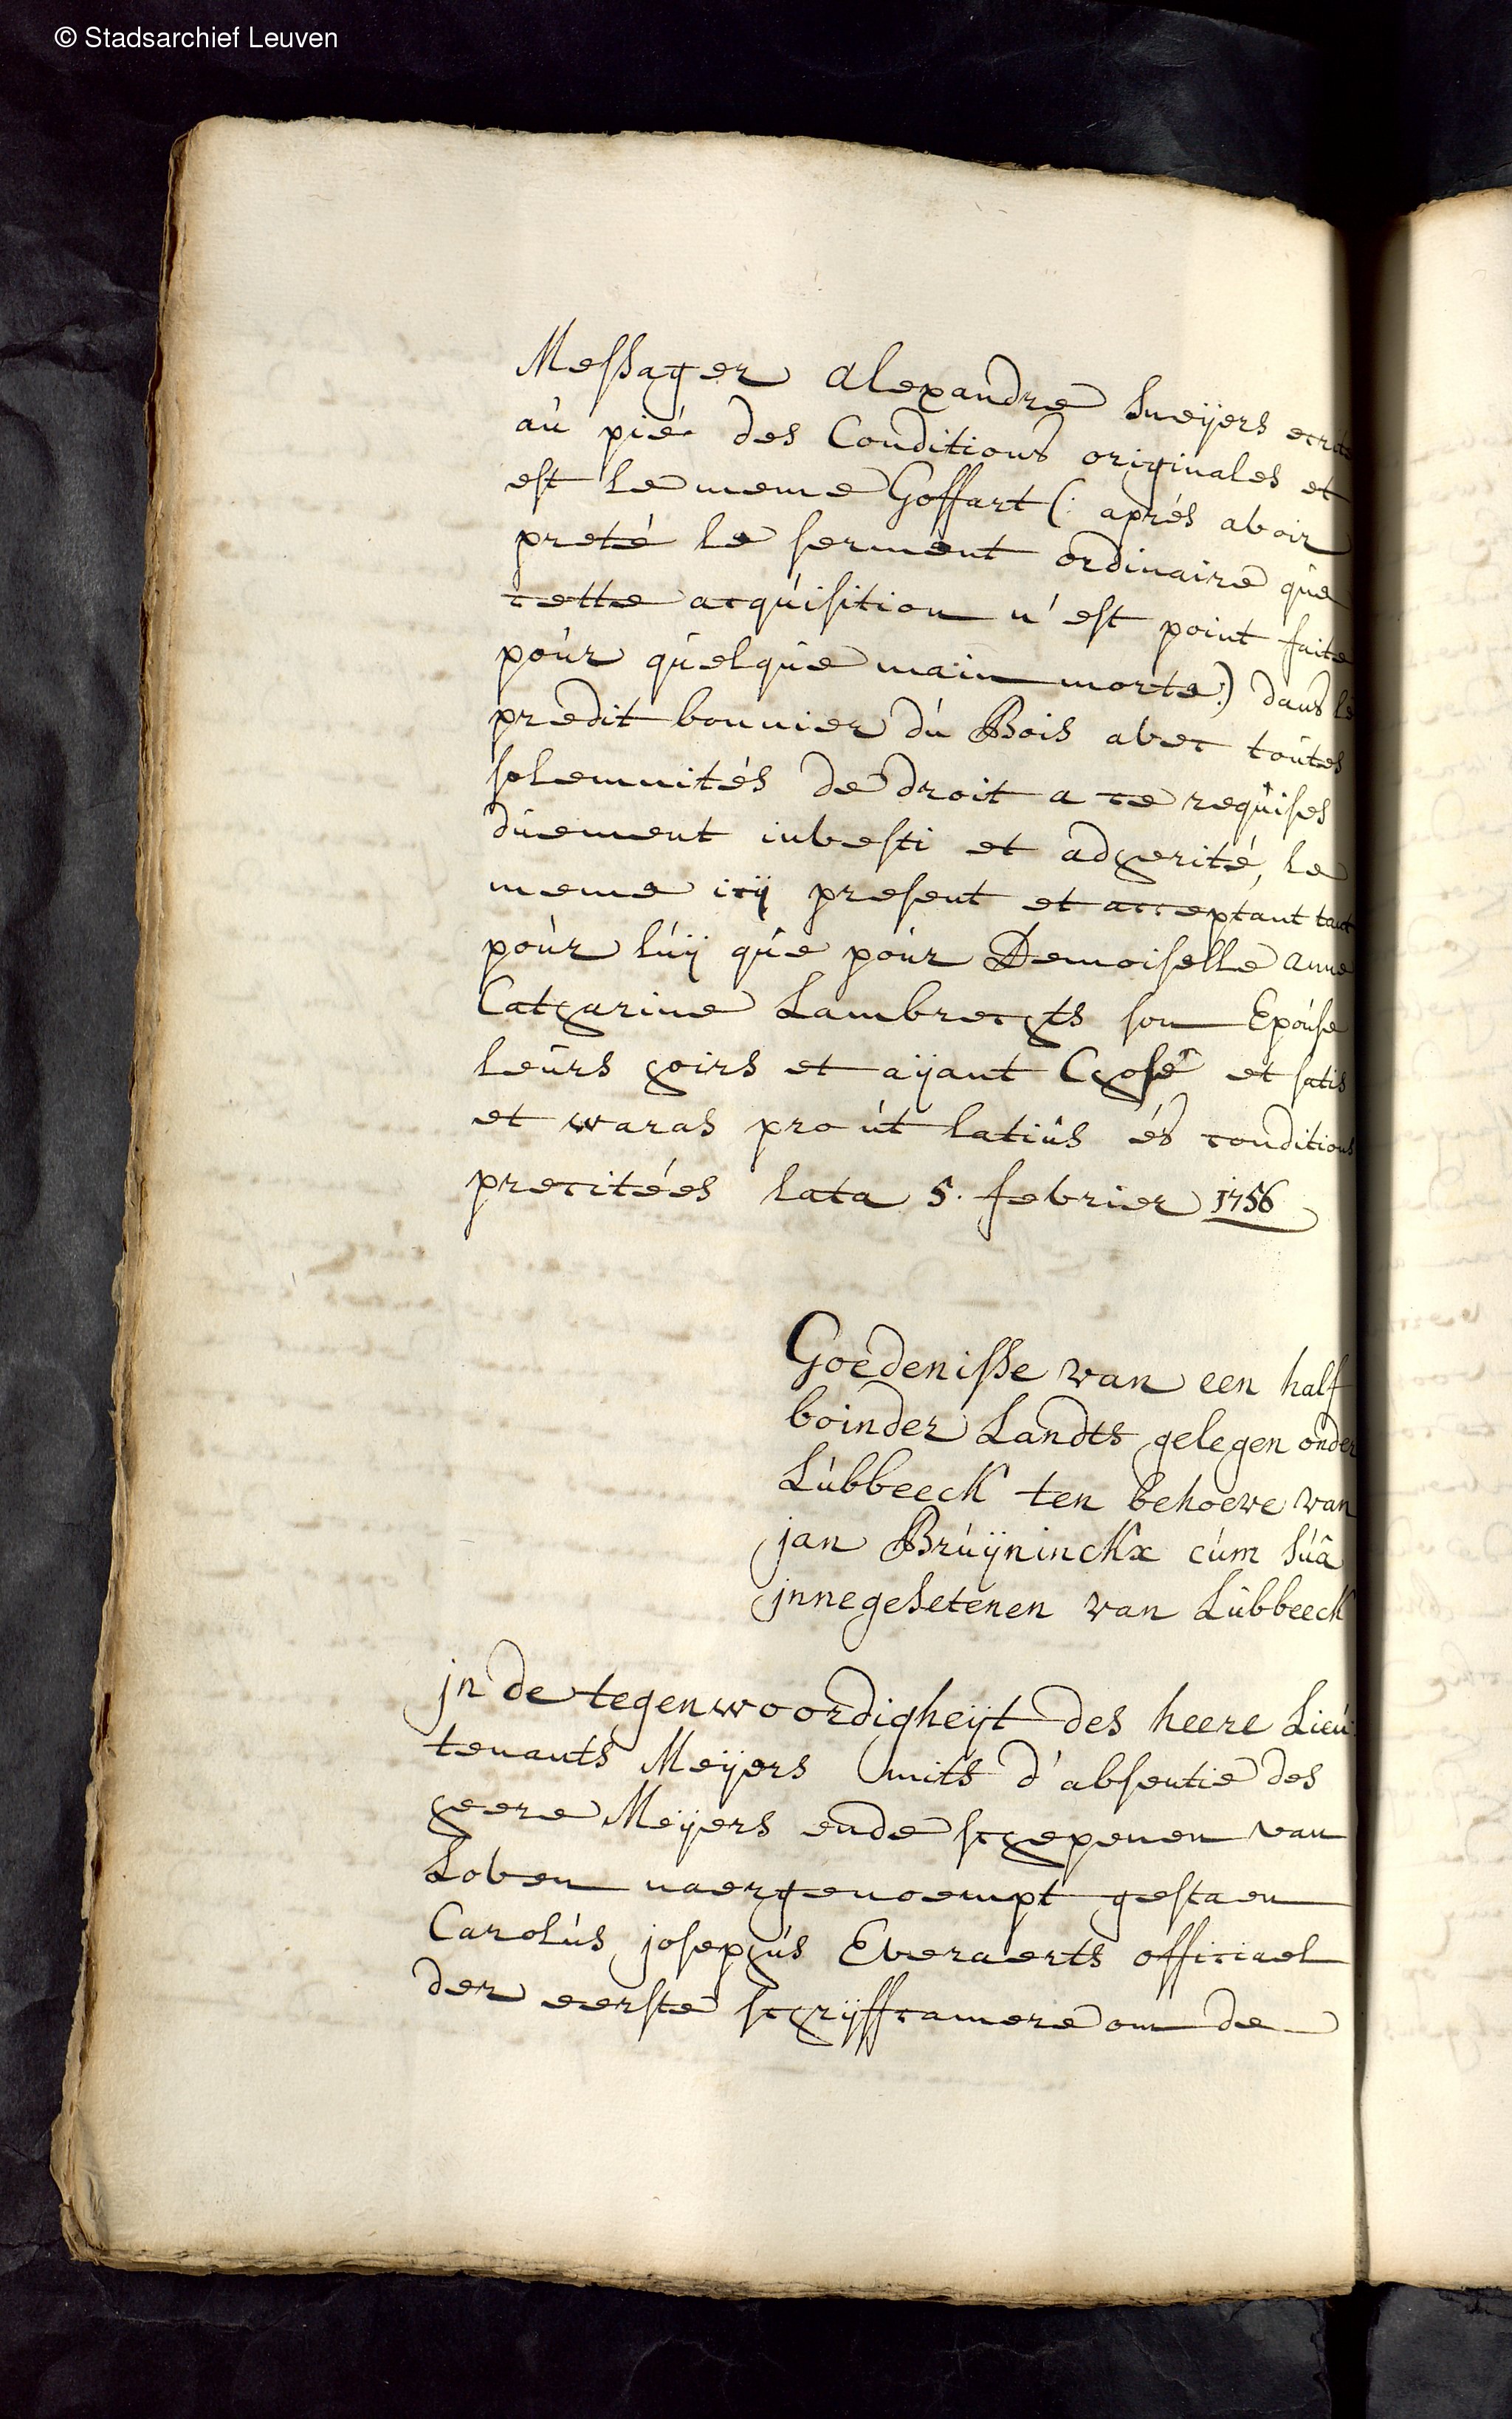 © Stadsarchief Leuven
Messager Alexandre Sweÿers ecrite
aú pié des Conditions originales et
est le meme Goffart (: aprés avoir
preté le serment ordinaire que
cette acqúisition n'est point faite
poúr qúelqúe main morte:) dans le
predit bonnier dú Bois avec toútes
solemnités de droit a ce reqúises
dúement investi et adherité, le
meme icÿ present et acceptant tant
poúr lúÿ qúe poúr Demoiselle Anne
Catharine Lambrechts son Epoúse
leúrs hoirs et aÿant Chose et satis
et waras pro út latiús és conditions
precitées lata 5. febrier 1756
Goedenisse van een half
boinder Landts gelegen onder
Lúbbeeck ten behoeve van
jan Brúÿninckx cúm súâ
jnnegesetenen van Lúbbeeck
jn de tegenwoordigheÿt des heere Lieú:
tenants Meÿers mits d'absentie des
heere Meÿers ende schepenen van
Loven naergenoempt gestaen
Carolús josephús Everaerts officiael
der eerste schrÿffcamere om de